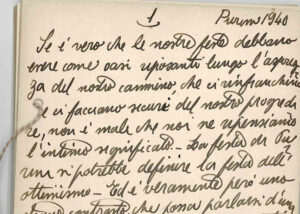 1 Purim 1940
Se é vero che le nostre feste debbano
essere come oasi riposanti lungo l'asprez
za del nostro cammino, che ci rinfranchino
e ci facciano securi del nostro progredi
re, non é male che noi ne ripensiamo
l'intimo significato - La festa di Pu
rim si potrebbe definire la festa dell'
ottimismo - Ed é veramente peró uno
contrasto che possa parlarsi d'un